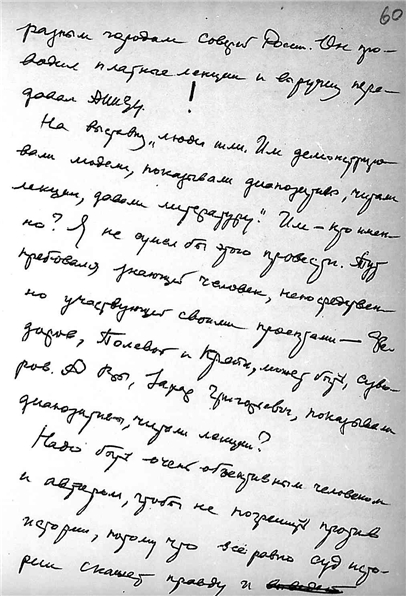 60
разным городам Советс. Росси. Он про-
водил платные лекции и выручку пере-
давал
На выставку „люди шли. Им демонстриро-
вали модели, показывали диапозитивы, читали
лекции, давали литературу." Им – кто имен-
но? Я не сумел бы этого провести. Тут
требовался знающий человек, непосредствен-
но участвующий своими проектами — Фе-
доров, Полевой и Крейн, может быть, Суво-
ров. А Вы, Захар Григорьевич, показывали
диапозитивы, читали лекции?
Надо быть очень объективным человеком
и автором, чтобы не погрешить против
истории, потому что всё равно суд исто-
рии скажет правду и